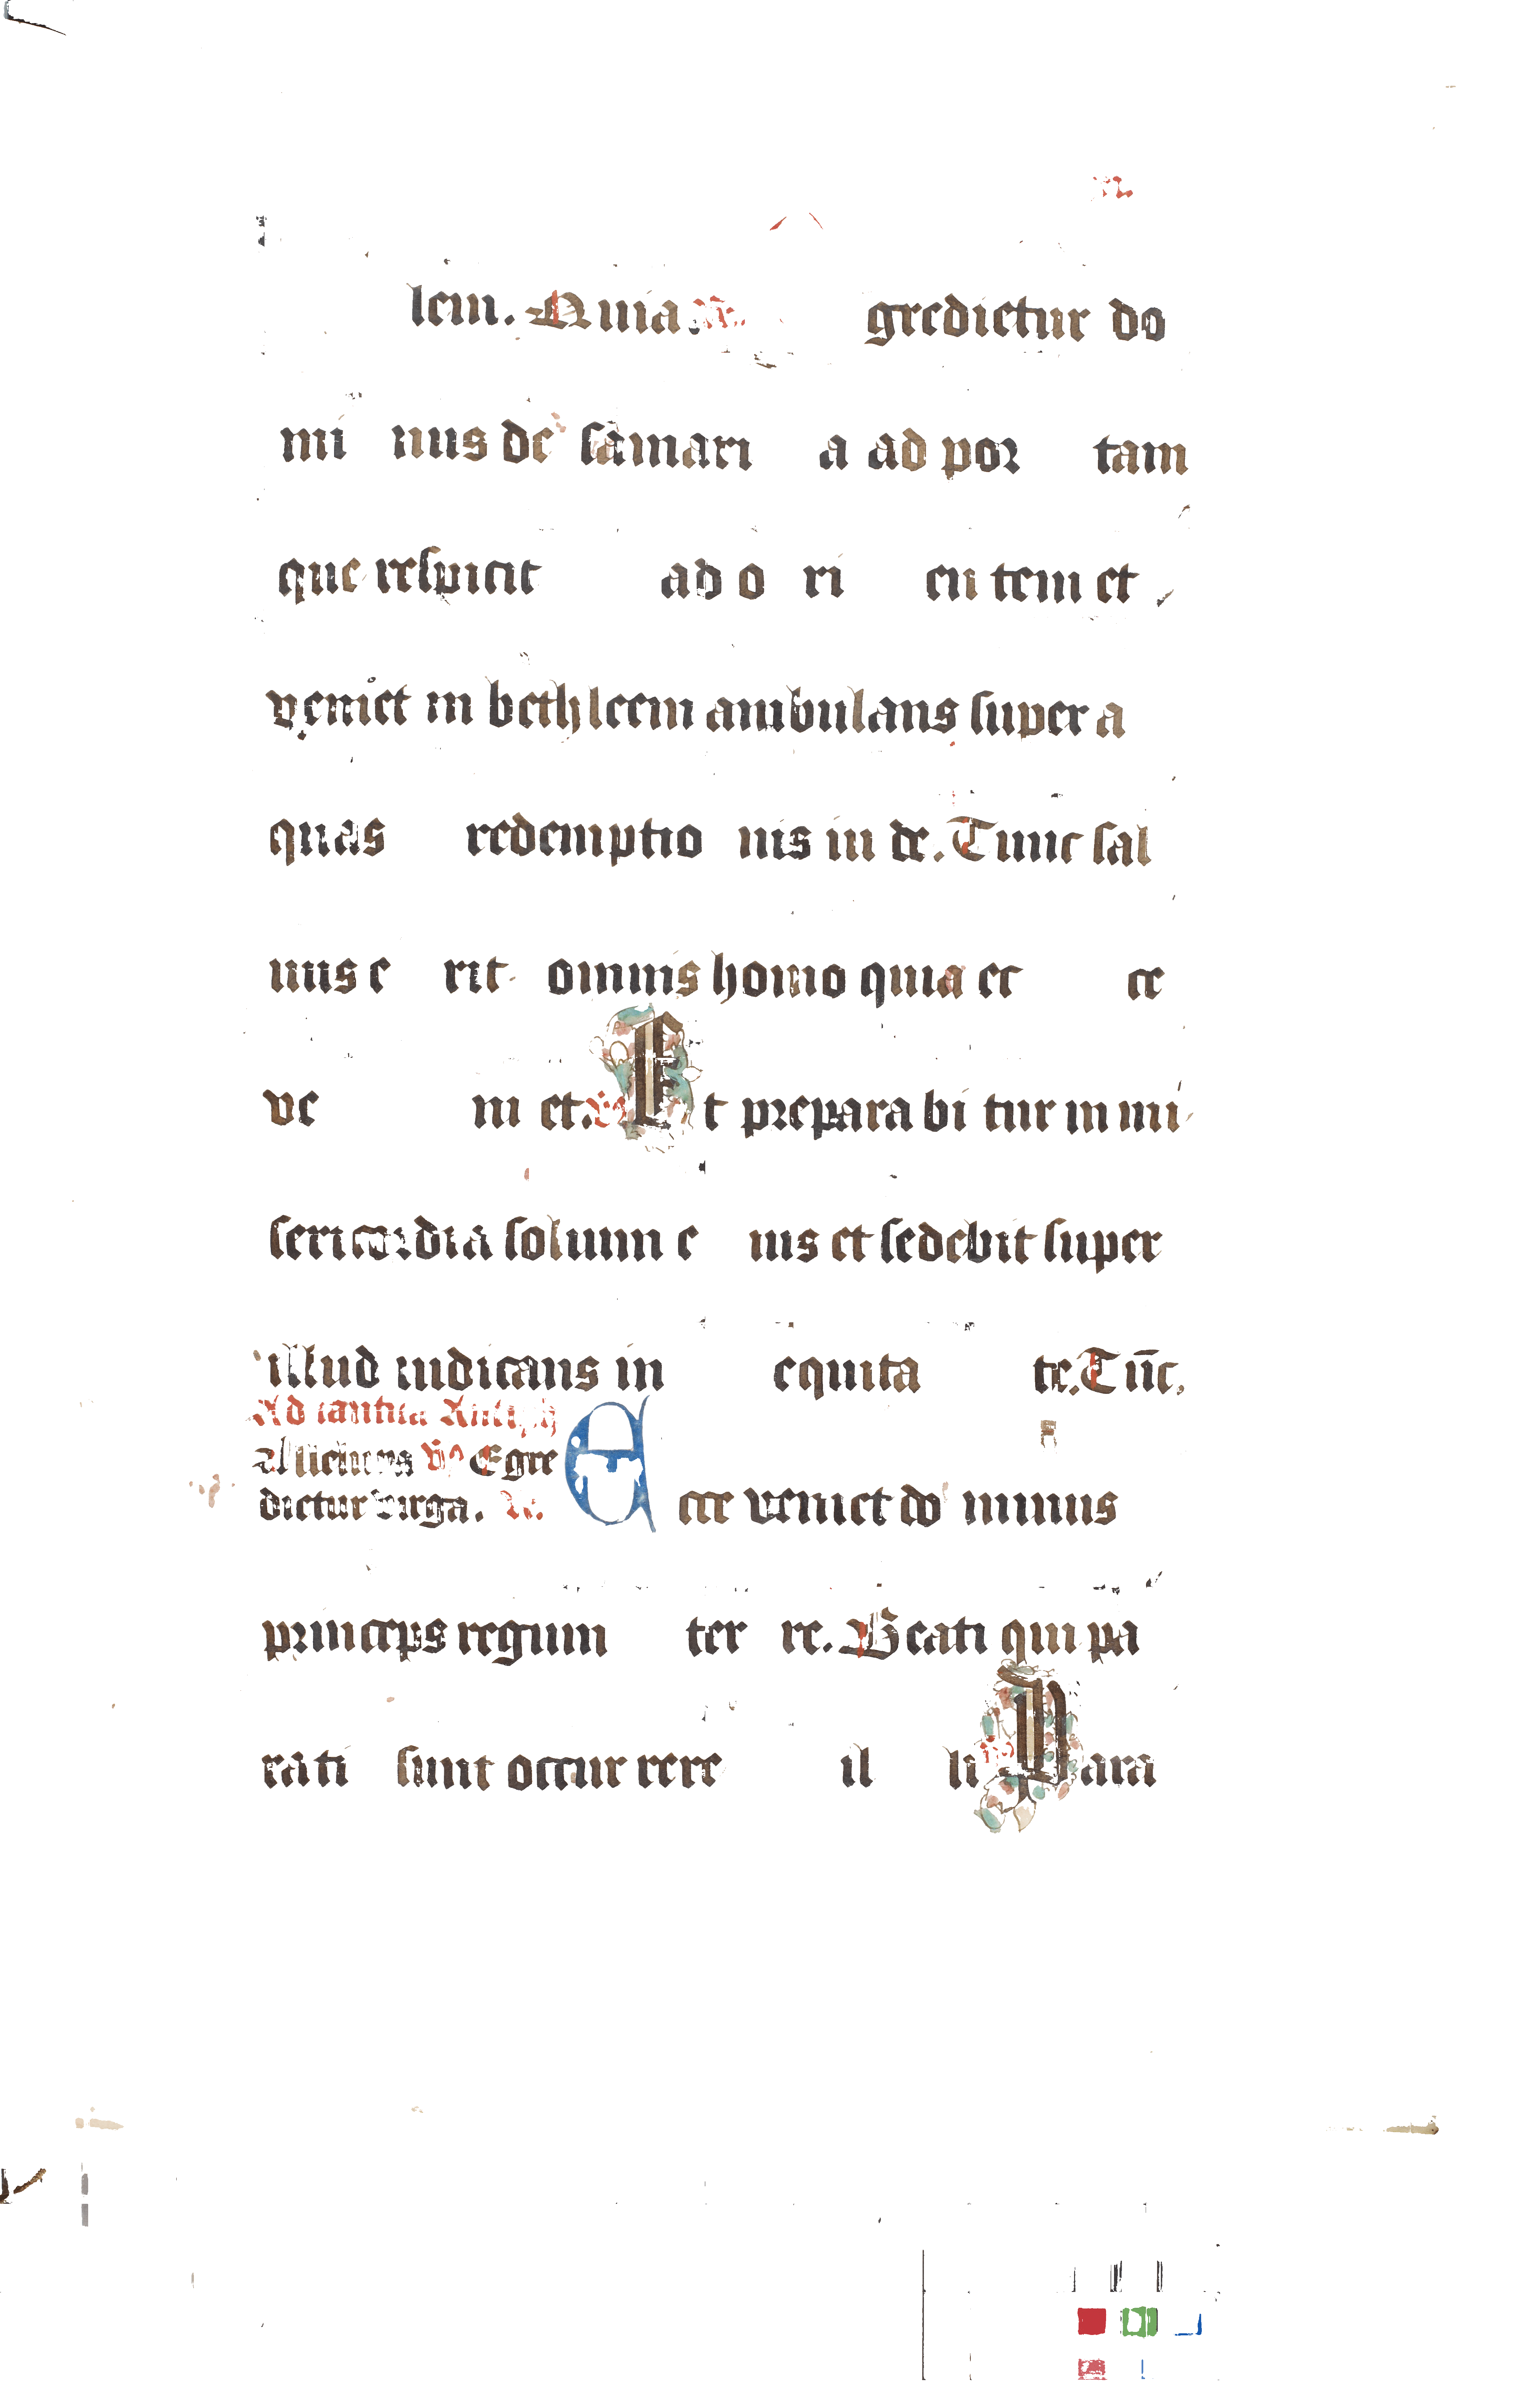 lem. Quia. gredictur do
mi nus de samari a ad por tam
que respicit ad o ri en tem et
veniet in bethleem ambulans super a
quas redemptio nis in de. Tunc sal
uus e rit omnis homo quia ec ce
ve ni et. Et prepara bi tur in mi
sericordia solium e ius et sedebit super
illud iudicans in equita te. Tūc.
Ad
Egre
dictur virga. Ecce veniet do minus
princeps regum ter re. Beati qui pa
rati sunt occur rere il li Para